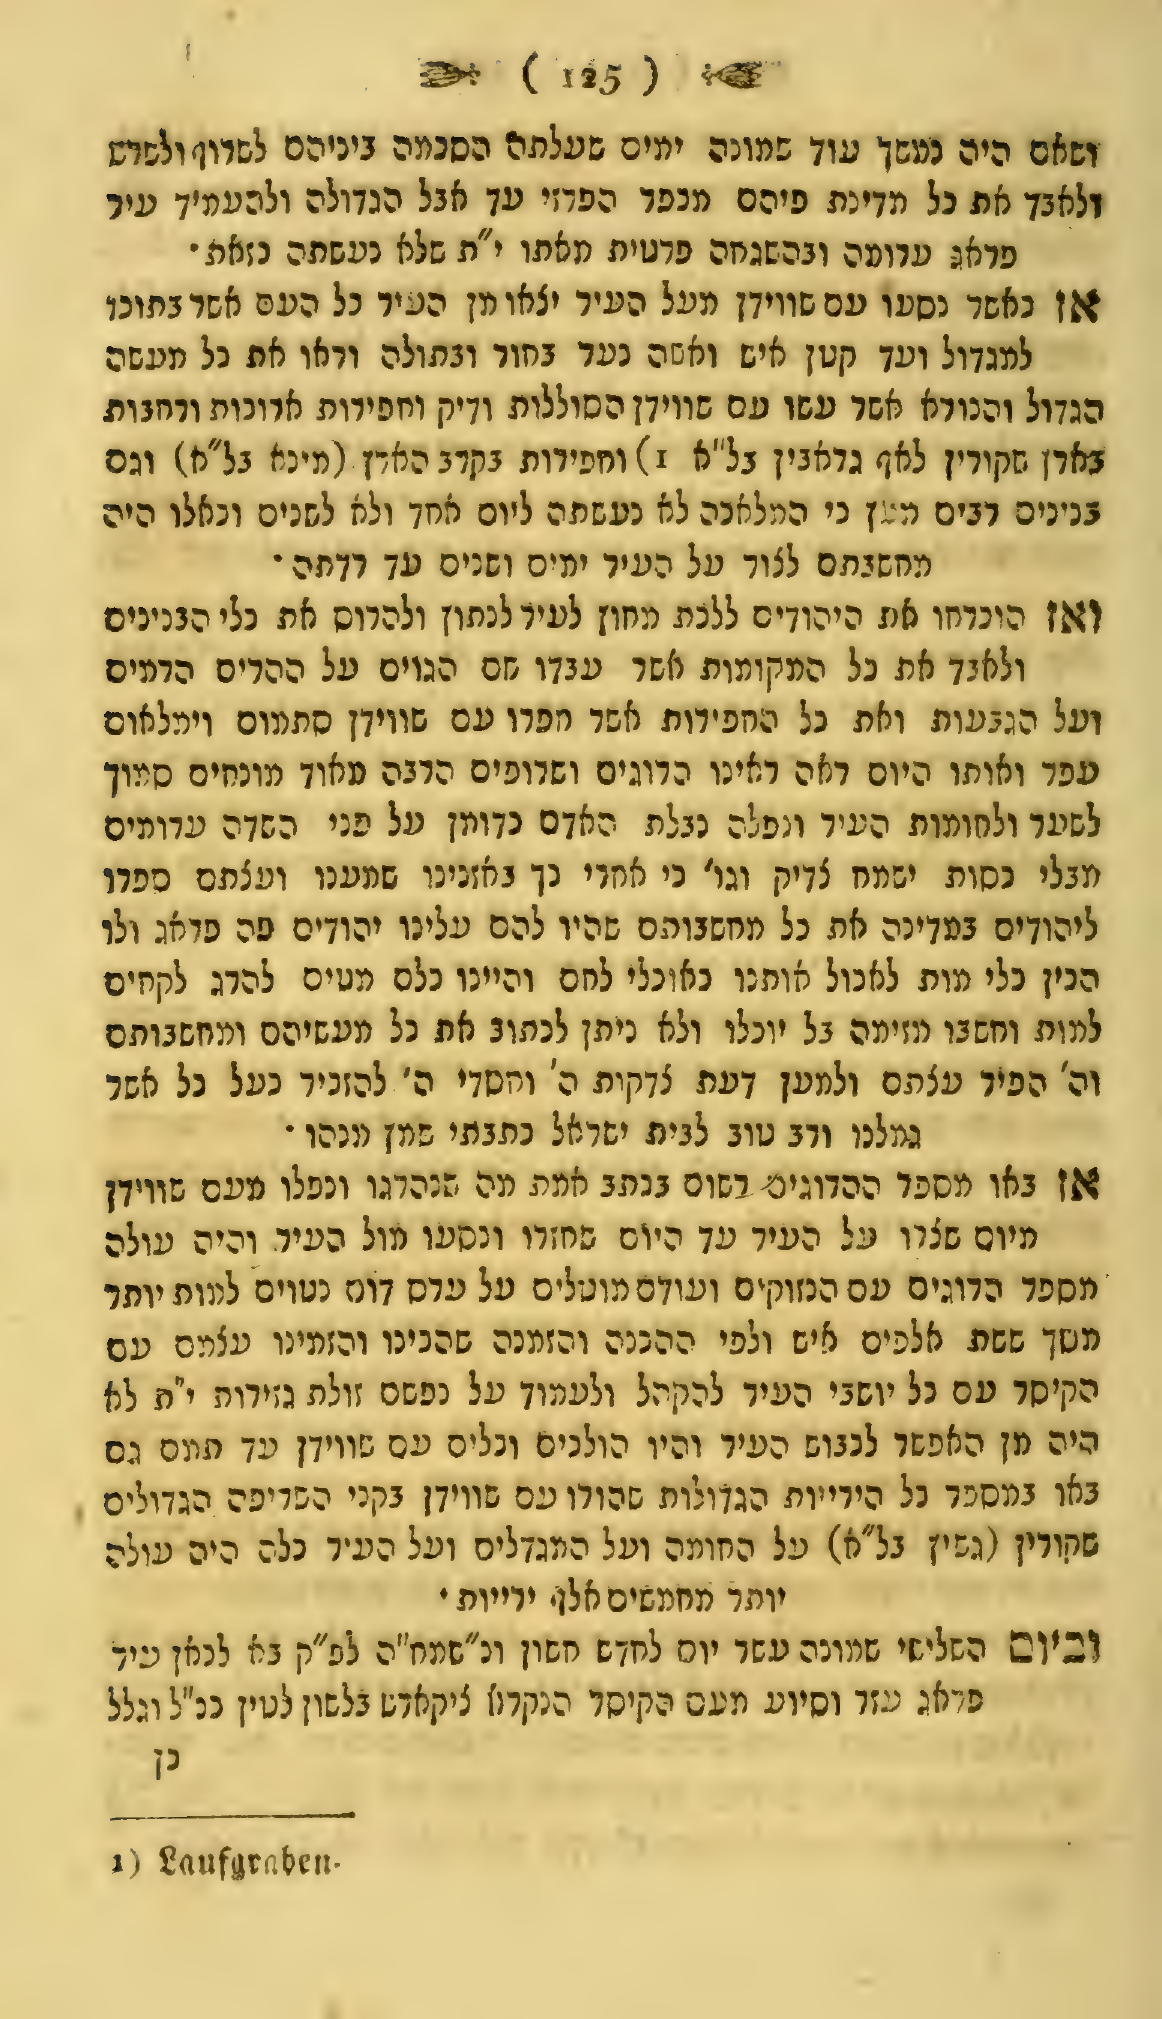 ( 125 )
ושאם היה נמשך עוד שמונה ימים שעלתה הסכמה ביניהם לשרוף ולשרש
ולאבד את כל מדינת פיהם מכפר הפרזי עד אבל הגדולה ולהעמיד עיר
פראג ערומה ובהשגחה פרטית מאתו י״ת שלא נעשתה כזאת ·
אז כאשר נסעו עם שווידן מעל העיר יצאו מן העיר כל העם אשר בתוכו
למגדול ועד קטן איש ואשה נער בחור ובתולה וראו את כל מעשה
הגדול והנורא אשר עשו עם שווידן הסוללות ודיק וחפירות ארוכות ורחבות
בארץ שקורין לאף גראבין בל״א 1) וחפירות בקרב הארץ (מינא בל״א) וגם
בנינים רבים מעץ כי המלאכה לא נעשתה ליום אחד ולא לשנים וכאלו היה
מחשבתם לצור על העיר ימים ושנים עד רדתה ·
ואז הוכרחו את היהודים ללכת מחוץ לעיר לנתוץ ולהרוס את כלי הבנינים
ולאבד את כל המקומות אשר עבדו שם הגוים על ההרים הרמים
ועל הגבעות ואת כל החפירות אשר חפרו עם שווידן סתמום וימלאום
עפר ואותו היום ראה ראינו הרוגים ושרופים הרבה מאוד מונחים סמוך
לשער ולחומות העיר ונפלה נבלת האדם כדומן על פני השדה ערומים
מבלי כסות ישמח צדיק וגו׳ כי אחרי כך באזנינו שמענו ועצתם ספרו
ליהודים במדינה את כל מחשבותם שהיו להם עלינו יהודים פה פראג ולו
הכין כלי מות לאכול אותנו כאוכלי לחם והיינו כלם מטים להרג לקחים
למות וחשבו מזימה בל יוכלו ולא ניתן לכתוב את כל מעשיהם ומחשבותם
וה׳ הפיר עצתם ולמען דעת צדקות ה׳ וחסדי ה׳ להזכיר כעל כל אשר
גמלנו ורב טוב לבית ישראל כתבתי שמן מנהו ·
אז באו מספר ההרוגים רשום בכתב אמת מה שנהרגו ונפלו מעם שווידן
מיום שצרו על העיר עד היום שחזרו ונסעו מול העיר והיה עולה
מספר הרוגים עם הנזוקים ועודם מוטלים על ערס דום נטוים למות יותר
משך ששת אלפים איש ולפי ההכנה והזמנה שהכינו והזמינו עצמם עם
הקיסר עם כל יושבי העיר להקהל ולעמוד על נפשם זולת גזירות י״ת לא
היה מן האפשר לכבוש העיר והיו הולכים וכלים עם שווידן עד תמם גם
באו במספר כל היריות הגדולות שהורו עם שווידן בקני השריפה הגדולים
שקורין (גשיץ בל״א) על החומה ועל המגדלים ועל העיר כלה היה עולה
יותר מחמשים אלף ירייות ·
וביום השלישי שמונה עשר יום לחדש חשון וכ״שמח״ה לפ״ק בא לכאן עיר
פראג עזר וסיוע מעם הקיסר הנקרא ציקארש בלשון לטין כנ״ל וגלל
כן
1) Laufgraben.